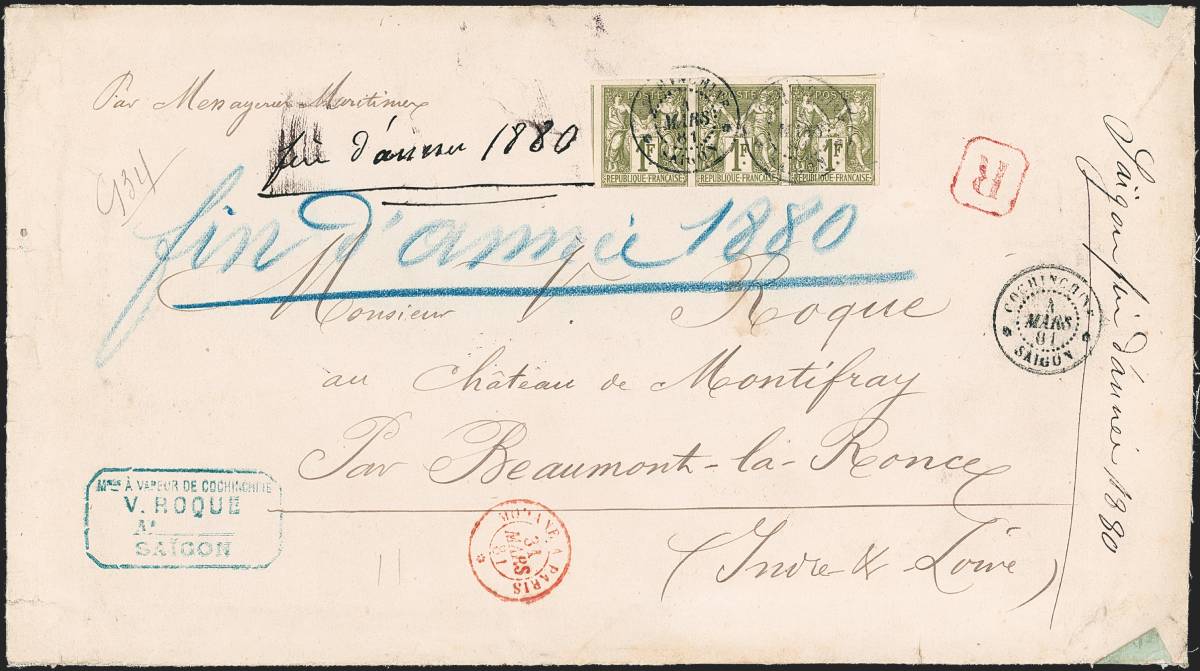 Par Messageries Maritimes
fin d'année 1880
934
fin d'année 1880
POSTE
1F
RÉPUBLIQUE FRANÇAISE
POSTE
1F
RÉPUBLIQUE FRANÇAISE
POSTE
1F
RÉPUBLIQUE FRANÇAISE
COCHINCHINE
MARS
81
SAIGON
R
Monsieur V. Roque
au Château de Montifray
Par Beaumont-la-Ronce
(Indre & Loire)
COCHINCHINE
4
MARS
81
SAIGON
Saigon fin d'année 1880
Mries À VAPEUR DE COCHINCHINE
V. ROQUE
At
SAÏGON
MODANE A PARIS
31
MARS
81
11